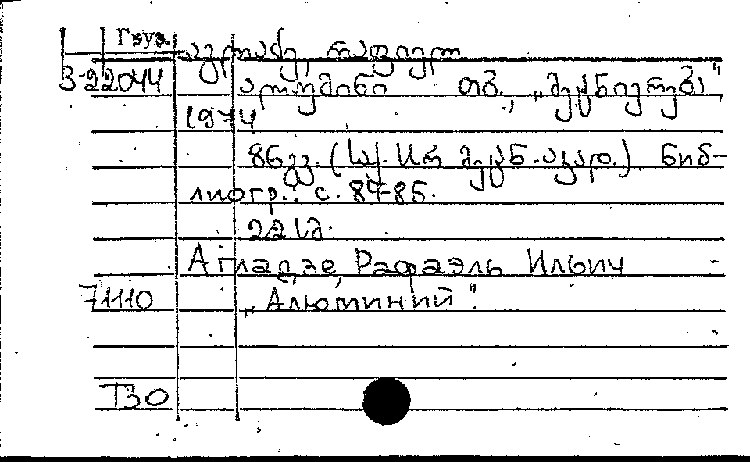 Груз.
აგლაძე, რაფიელ
3-22044 ალუმინი თბ., „მეცნიერება"
1974
86გვ. (საქ. სსრ მეცნ. აკად.) Биб-
лиогр.: с. 84-85.
22 სმ.
Агладзе, Рафаэль Ильич
71110 „Алюминий".
ТЗО